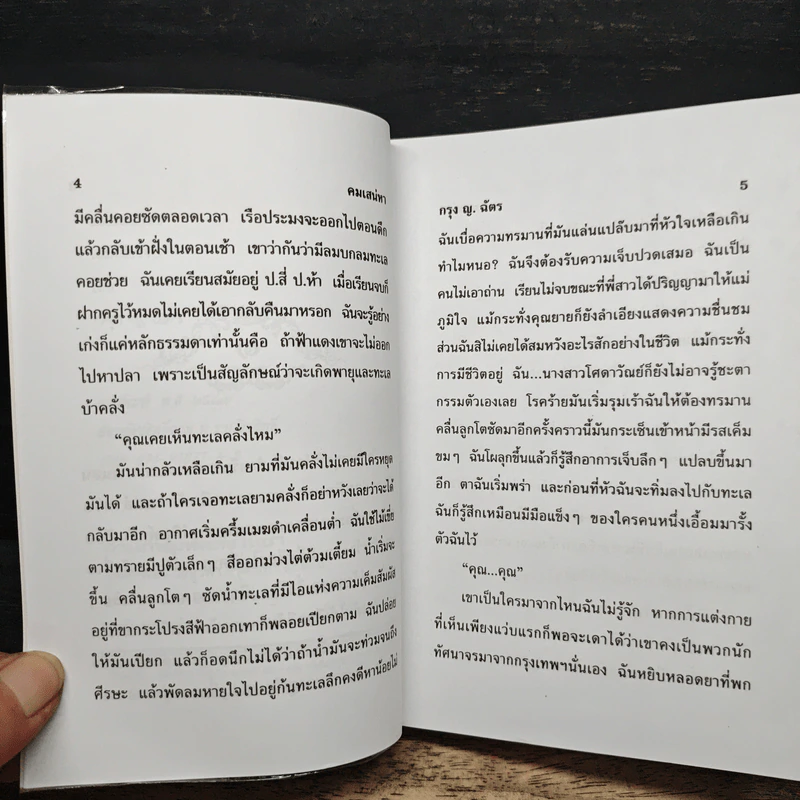 4
คมเสน่หา
มีคลื่นคอยซัดตลอดเวลา เรือประมงจะออกไปตอนดึก
แล้วกลับเข้าฝั่งในตอนเช้า เขาว่ากันว่ามีลมบกลมทะเล
คอยช่วย ฉันเคยเรียนสมัยอยู่ ป.สี่ ป.ห้า เมื่อเรียนจบก็
ฝากครูไว้หมดไม่เคยได้เอากลับคืนมาหรอก ฉันจะรู้อย่าง
เก่งก็แค่หลักธรรมดาเท่านั้นคือ ถ้าฟ้าแดงเขาจะไม่ออก
ไปหาปลา เพราะเป็นสัญลักษณ์ว่าจะเกิดพายุและทะเล
บ้าคลั่ง
“คุณเคยเห็นทะเลคลั่งไหม”
มันน่ากลัวเหลือเกิน ยามที่มันคลั่งไม่เคยมีใครหยุด
มันได้ และถ้าใครเจอทะเลยามคลั่งก็อย่าหวังเลยว่าจะได้
กลับมาอีก อากาศเริ่มครึ้มเมฆดำเคลื่อนต่ำ ฉันใช้ไม้เขี่ย
ตามทรายมีปูตัวเล็กๆ สีออกม่วงไต่ต้วมเตี้ยม น้ำเริ่มจะ
ขึ้น คลื่นลูกโตๆ ซัดน้ำทะเลที่มีไอแห่งความเค็มสัมผัส
อยู่ที่ขากระโปรงสีฟ้าออกเทาก็พลอยเปียกตาม ฉันปล่อย
ให้มันเปียก แล้วก็อดนึกไม่ได้ว่าถ้าน้ำมันจะท่วมจนถึง
ศีรษะ แล้วพัดลมหายใจไปอยู่ก้นทะเลลึกคงดีหาน้อยไม่
กรุง ญ. ฉัตร
5
ฉันเบื่อความทรมานที่มันแล่นแปล๊บมาที่หัวใจเหลือเกิน
ทำไมหนอ? ฉันจึงต้องรับความเจ็บปวดเสมอ ฉันเป็น
คนไม่เอาถ่าน เรียนไม่จบขณะที่พี่สาวได้ปริญญามาให้แม่
ภูมิใจ แม้กระทั่งคุณยายก็ยังลำเอียงแสดงความชื่นชม
ส่วนฉันสิไม่เคยได้สมหวังอะไรสักอย่างในชีวิต แม้กระทั่ง
การมีชีวิตอยู่ ฉัน...นางสาวโศดาวัณย์ก็ยังไม่อาจรู้ชะตา
กรรมตัวเองเลย โรคร้ายมันเริ่มรุมเร้าฉันให้ต้องทรมาน
คลื่นลูกโตซัดมาอีกครั้งคราวนี้มันกระเซ็นเข้าหน้ามีรสเค็ม
ขมๆ ฉันโผลุกขึ้นแล้วก็รู้สึกอาการเจ็บลึกๆ แปลบขึ้นมา
อีก ตาฉันเริ่มพร่า และก่อนที่หัวฉันจะทิ่มลงไปกับทะเล
ฉันก็รู้สึกเหมือนมีมือแข็งๆ ของใครคนหนึ่งเอื้อมมารั้ง
ตัวฉันไว้
“คุณ...คุณ”
เขาเป็นใครมาจากไหนฉันไม่รู้จัก หากการแต่งกาย
ที่เห็นเพียงแว่บแรกก็พอจะเดาได้ว่าเขาคงเป็นพวกนัก
ทัศนาจรมาจากกรุงเทพฯนั่นเอง ฉันหยิบหลอดยาที่พก